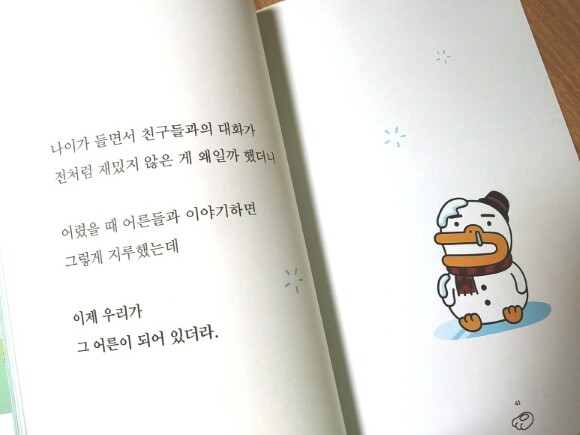 나이가 들면서 친구들과의 대화가
전처럼 재밌지 않은 게 왜일까 했더니
어렸을 때 어른들과 이야기하면
그렇게 지루했는데
이제 우리가
그 어른이 되어 있더라.